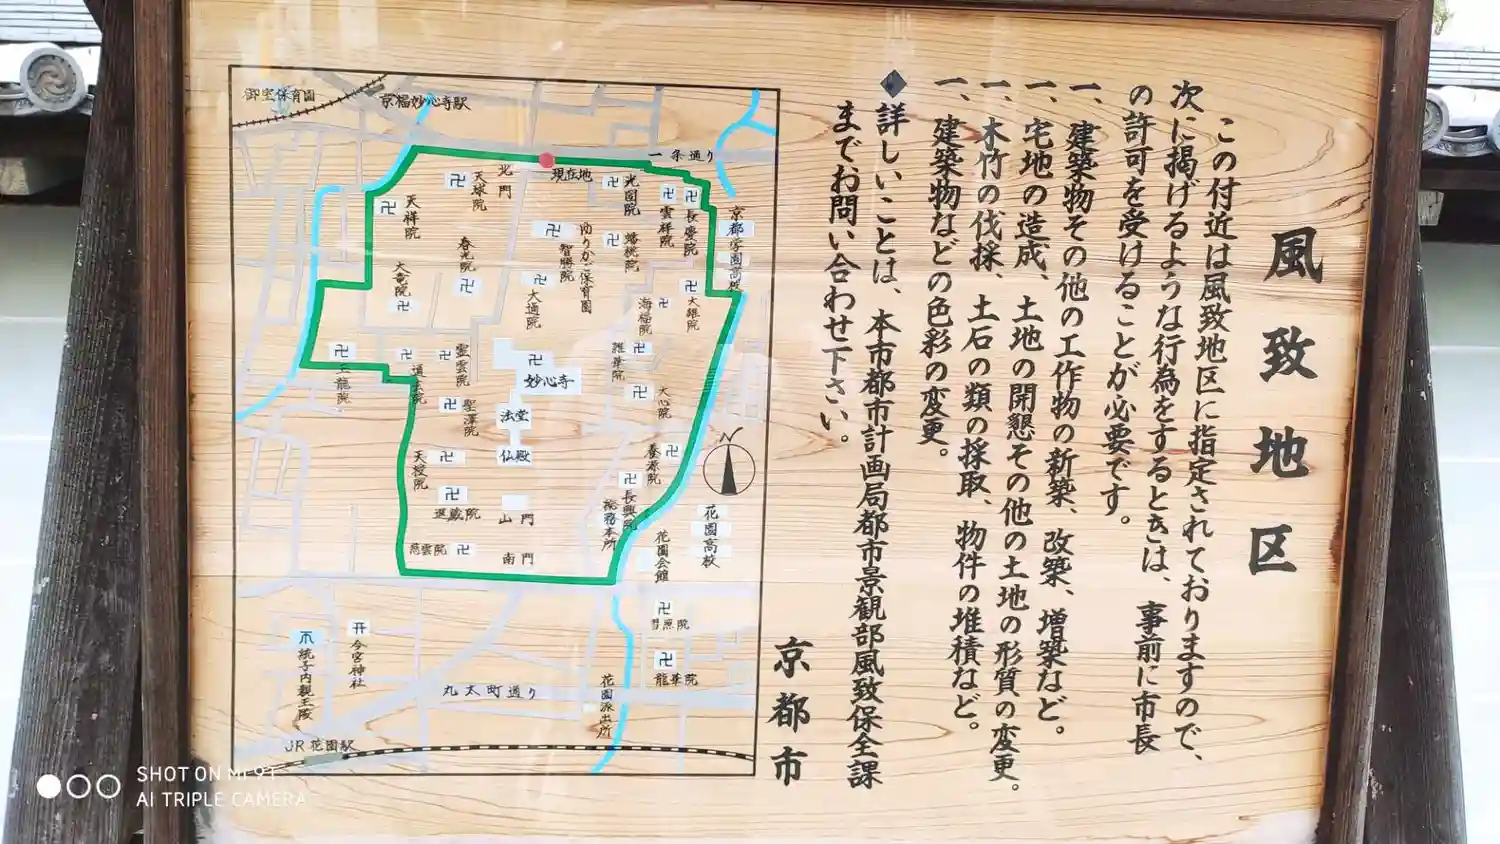 風致地区
この付近は風致地区に指定されておりますので、
次に掲げるような行為をするときは、事前に市長
の許可を受けることが必要です。
一、建築物その他の工作物の新築、改築、増築など。
一、宅地の造成、土地の開懇その他の土地の形質の変更。
一、木竹の伐採、土石の類の採取、物件の堆積など。
一、建築物などの色彩の変更。
◆詳しいことは、本市都市計画局都市景観部風致保全課
までお問い合わせ下さい。
京都市
御室保育園
京福妙心寺駅
一条通り
現在地
北門
天球院
天祥院
光国院
雲祥院
長慶院
京都学園高校
春光院
智勝院
ゆりかご保育園
蟠桃院
大竜院
大通院
海福院
大雄院
玉龍院
通玄院
霊雲院
聖澤院
妙心寺
雑華院
大心院
法堂
仏殿
天授院
養源院
退蔵院
山門
長興院
総務本所
N
花園高校
慈雲院
南門
花園会館
龍華院
今宮神社
統子内親王陵
丸太町通り
花園派出所
JR花園駅
SHOT ON MI 9T
AI TRIPLE CAMERA